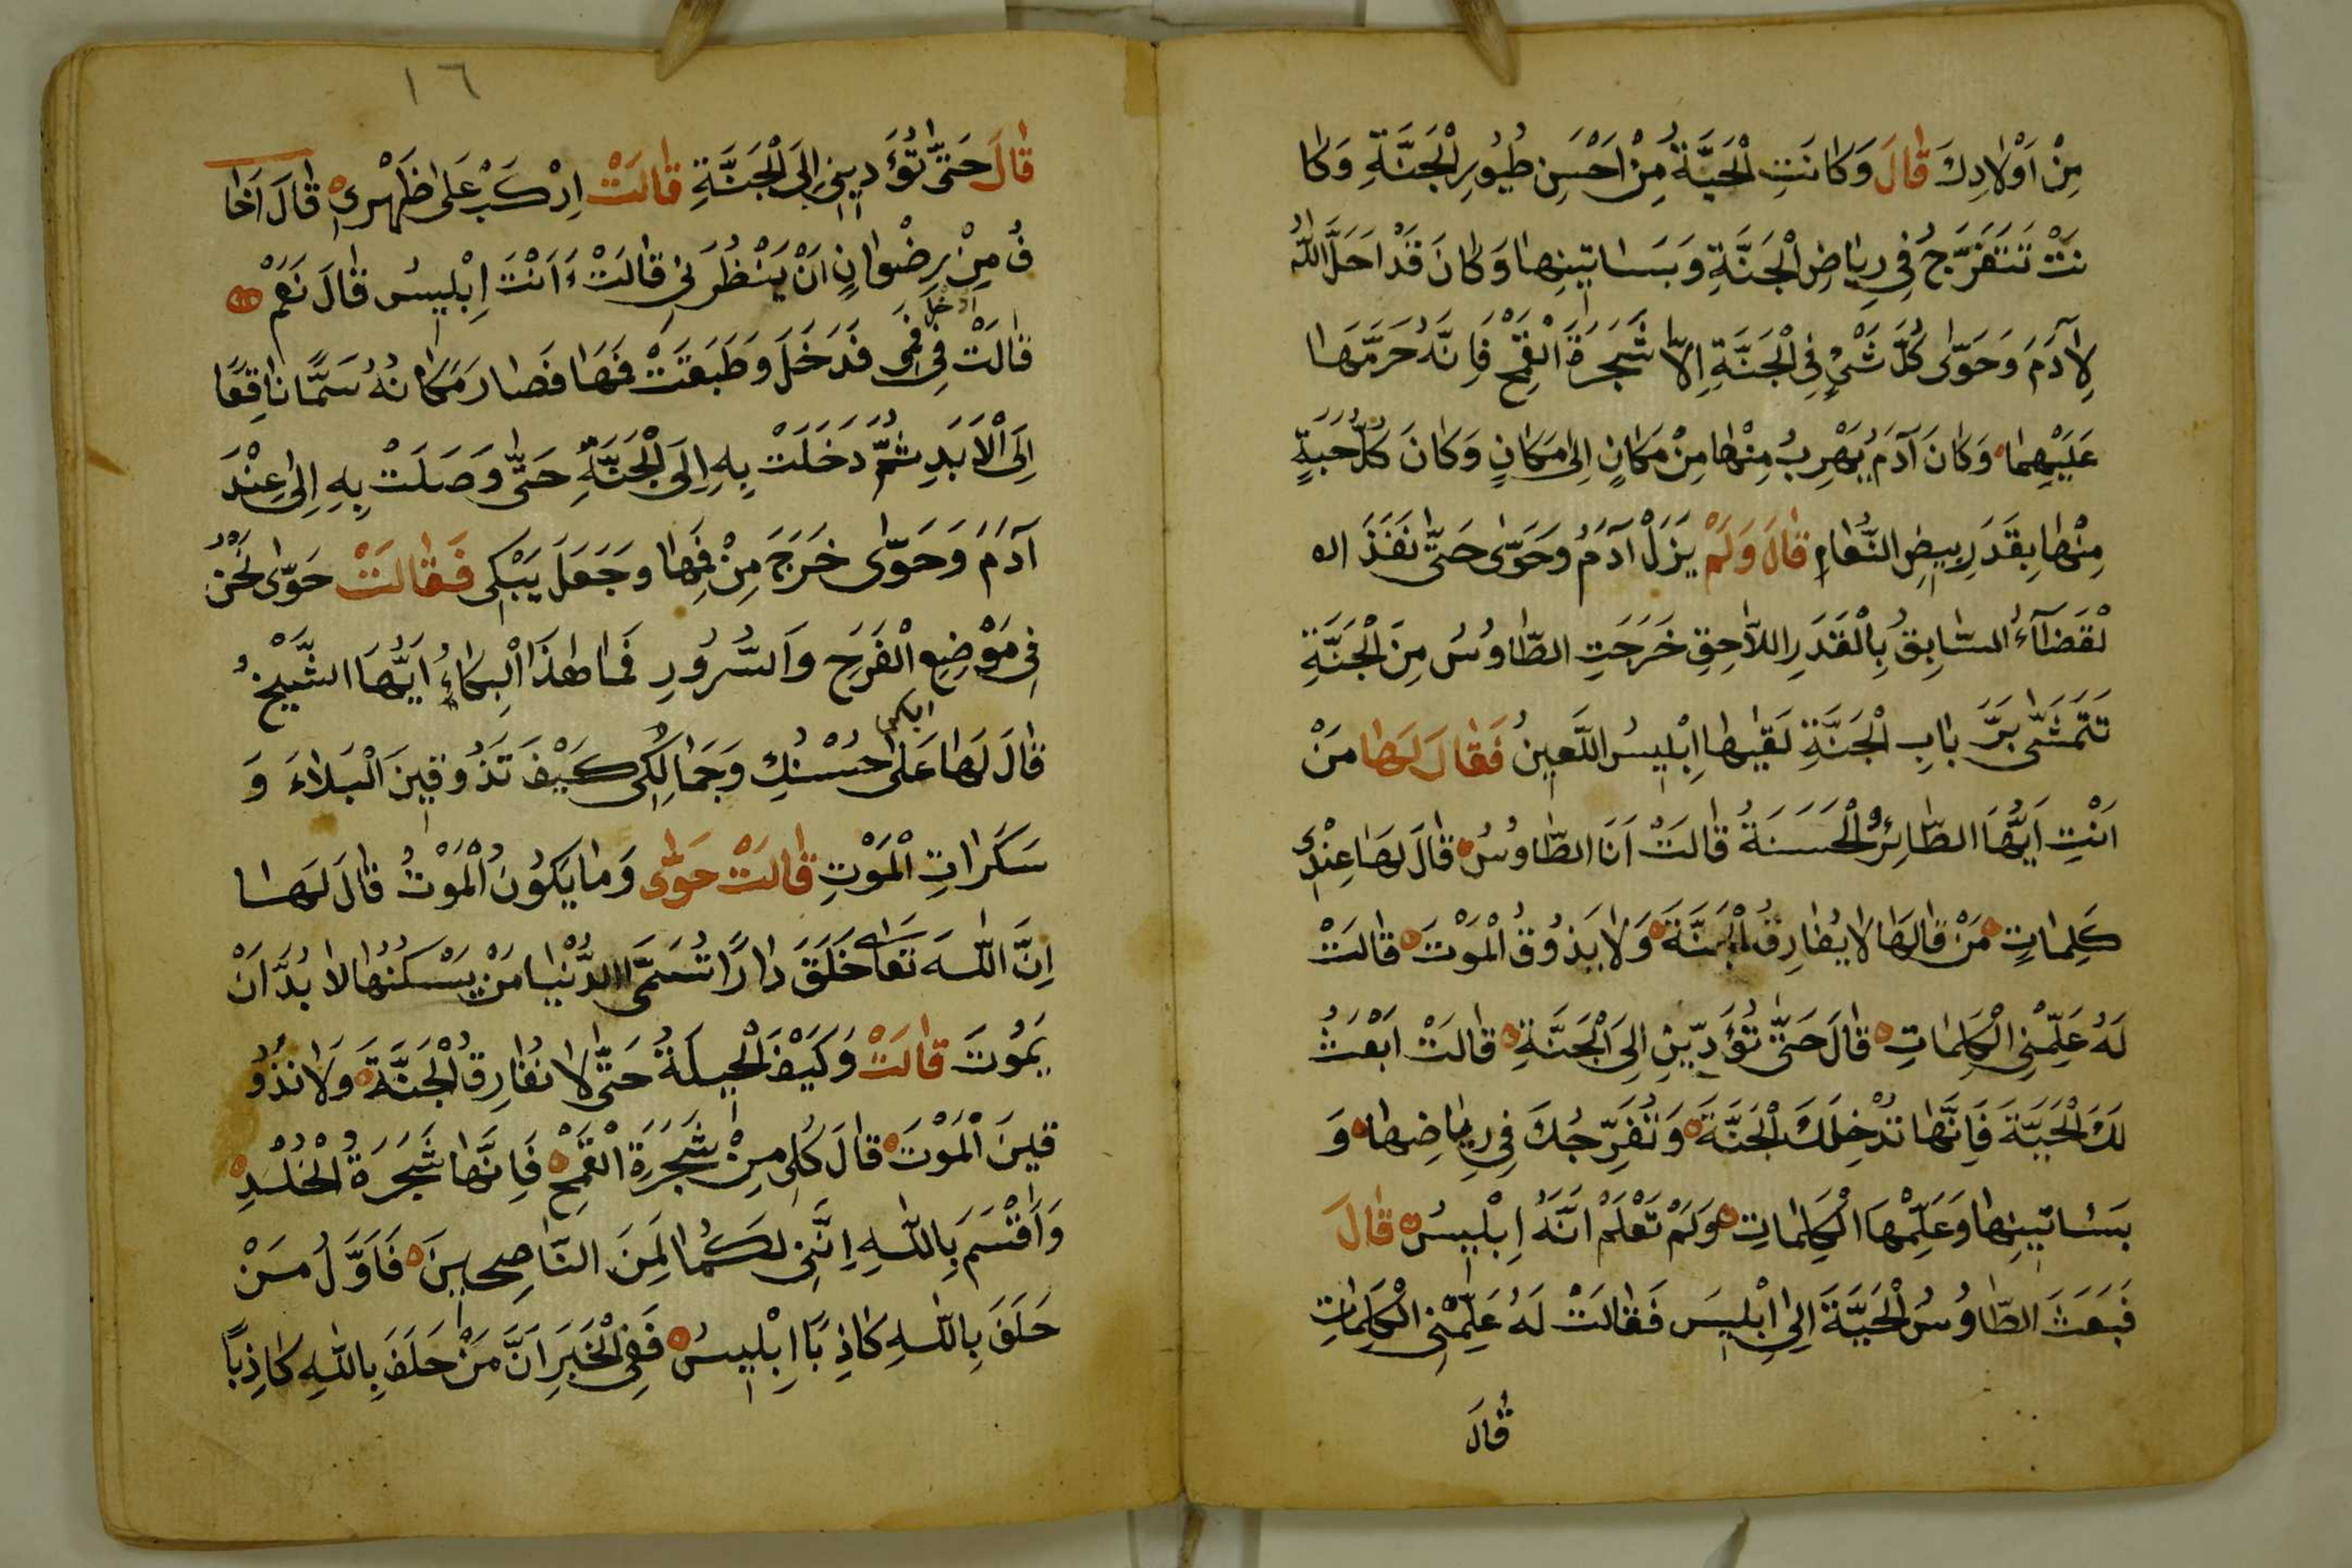 مِنْ اَوْلَادِكَ قَالَ وَكَانَتِ الْحَيَّةُ مِنْ اَحْسَنِ طُيُورِ الْجَنَّةِ وَكَا
نَتْ تَتَفَرَّجُ فِي رِيَاضِ الْجَنَّةِ وَبَسَاتِينِهَا وَكَانَ قَدْ اَحَلَّ اللّٰهُ
لِاٰدَمَ وَحَوّٰى كُلَّ شَيْءٍ فِي الْجَنَّةِ اِلَّا شَجَرَةَ الْقَمْحِ فَاِنَّهُ حَرَّمَهَا
عَلَيْهِمَا وَكَانَ آدَمُ يَهْرِبُ مِنْهَا مِنْ مَكَانٍ اِلٰى مَكَانٍ وَكَانَ كُلُّ حَبَّةٍ
مِنْهَا بِقَدَرِ بِيضِ النَّعَامِ قَالَ وَلَمْ يَزَلْ آدَمُ وَحَوّٰى حَتّٰى نَفَذَ ال
لْقَضَآءُ السَّابِقُ بِالْقَدَرِ اللَّاحِقِ خَرَجَتِ الطَّاوُسُ مِنَ الْجَنَّةِ
تَتَمَشّٰى بَرَّ بَابِ الْجَنَّةِ لَقِيَهَا اِبْلِيسُ اللَّعِينُ فَقَالَ لَهَا مَنْ
اَنْتِ اَيُّهَا الطَّائِرُ الْحَسَنَةُ قَالَتْ اَنَا الطَّاوُسُ قَالَ لَهَا عِنْدِي
كَلِمَاتٍ مَنْ قَالَهَا لَا يُفَارِقُ الْجَنَّةَ وَلَا يَذُوقُ الْمَوْتَ قَالَتْ
لَهُ عَلِّمْنِي الْكَلِمَاتِ قَالَ حَتّٰى تُؤَدِّينِ اِلَى الْجَنَّةِ قَالَتْ اَبْعَثُ
لَكَ الْحَيَّةَ فَاِنَّهَا تُدْخِلَكَ الْجَنَّةَ وَتُفَرِّجُكَ فِي رِيَاضِهَا وَ
بَسَاتِينِهَا وَعَلِّمْهَا الْكَلِمَاتِ وَلَمْ تَعْلَمْ اَنَّهُ اِبْلِيسُ قَالَ
فَبَعَثَ الطَّاوُسُ الْحَيَّةَ اِلٰى اِبْلِيسَ فَقَالَتْ لَهُ عَلِّمْنِي الْكَلِمَاتِ
قَالَ
١٦
قَالَ حَتّٰى تُؤَدِينِي اِلَى الْجَنَّةِ قَالَتْ اِرْكَبْ عَلٰى ظَهْرِي قَالَ اَخَا
فُ مِنْ رِضْوَانٍ اَنْ يَنْظُرَنِي قَالَتْ ءَاَنْتَ اِبْلِيسُ قَالَ نَعَمْ
ادخل
قَالَتْ فِي فَمِي فَدَخَلَ وَطَبَقَتْ فَمَهَا فَصَارَ مَكَانُهُ سَمًّا نَاقِعًا
اِلَى الْاَبَدِ ثُمَّ دَخَلَتْ بِهِ اِلَى الْجَنَّةِ حَتّٰى وَصَلَتْ بِهِ اِلٰى عِنْدَ
آدَمَ وَحَوّٰى خَرَجَ مِنْ فَمِهَا وَجَعَلَ يَبْكِي فَقَالَتْ حَوّٰى نَحْنُ
فِي مَوْضِعِ الْفَرَحِ وَالسُّرُورِ فَمَا هٰذَا الْبِكَاءُ اَيُّهَا الشَّيْخُ
ابكى
قَالَ لَهَا عَلٰى حُسْنِكِ وَجَمَالِكِي كَيْفَ تَذُوقِينَ الْبَلَاءَ وَ
سَكَرَاتِ الْمَوْتِ قَالَتْ حَوّٰى وَمَا يَكُونُ الْمَوْتُ قَالَ لَهَا
اِنَّ اللّٰهَ تَعَالٰى خَلَقَ دَارًا تُسَمَّى الدُّنْيَا مَنْ يَسْكُنُهَا لَا بُدَّ اَنْ
يَمُوتَ قَالَتْ وَكَيْفَ الْحِيلَةُ حَتّٰى لَا نُفَارِقُ الْجَنَّةَ وَلَا نَذُو
قِينَ الْمَوْتَ قَالَ كُلِي مِنْ شَجَرَةِ الْقَمْحِ فَاِنَّهَا شَجَرَةُ الْخُلْدِ
وَاَقْسَمَ بِاللّٰهِ اِنَّنِي لَكُمَا لَمِنَ النَّاصِحِينَ فَاَوَّلُ مَنْ
حَلَفَ بِاللّٰهِ كَاذِبًا اِبْلِيسُ فَفِي الْخَبَرِ اَنَّ مَنْ حَلَفَ بِاللّٰهِ كَاذِبًا